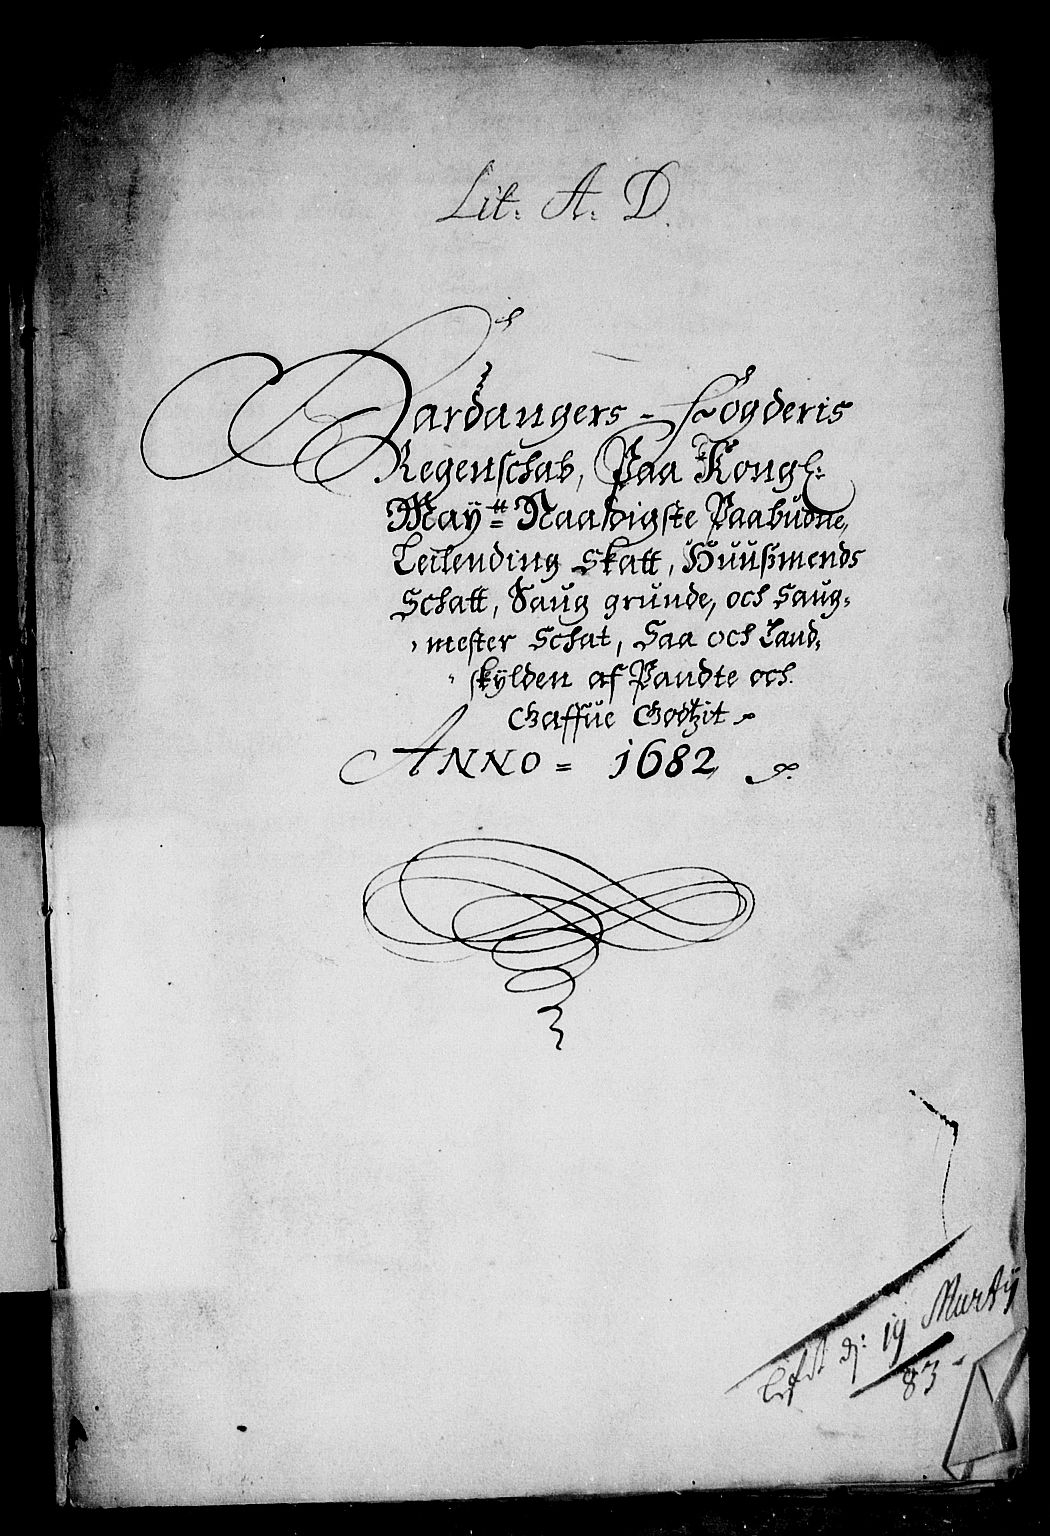 Lit: A: D.
Hardangers - Fogderis
Regenschab, Paa Kongl:
Maÿtt: Naadigste Paabudne,
Leilending Skatt, Huußmends
Schatt, Saug grunde, och Saug-
mester Schat, Saa och Land-
skÿlden af Pandte och
Gaffue Godtzit
ANNO = 1682
19 Martÿ
83